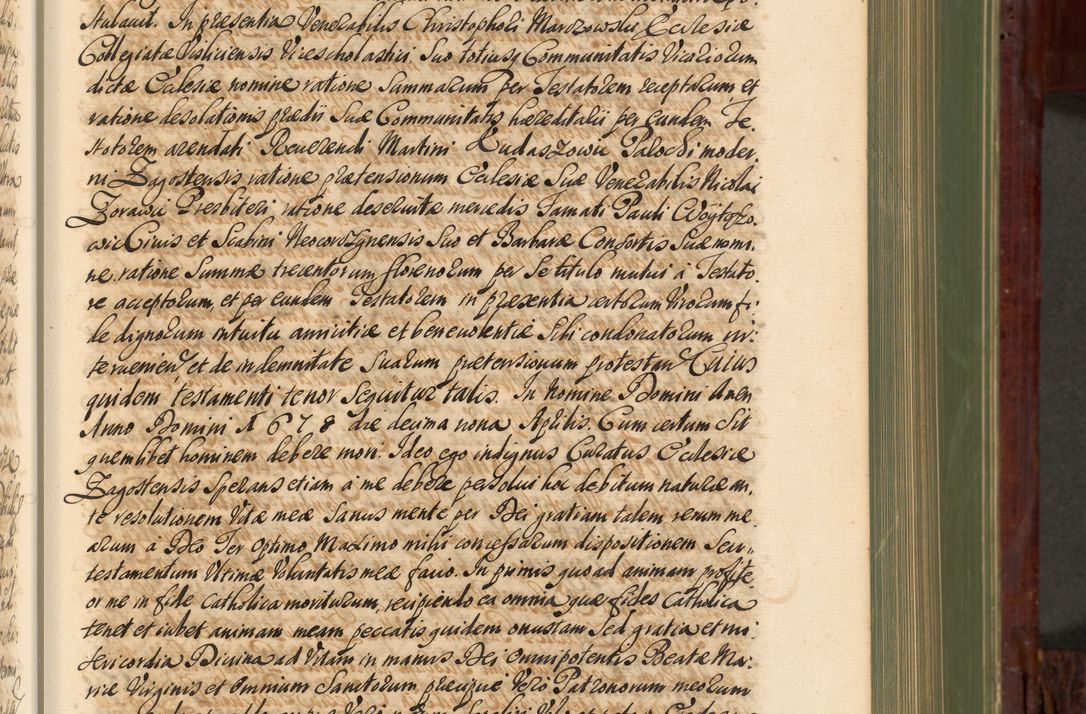 stulavit. In præsentia Venerabilis Christophori Marczowski Ecclesiæ
Collegiatæ Visliciensis Vicescholastici Suo totiusq Communitatis Vicariorum
dictæ Eclesiæ nomine ratione Summarum per Testatorem receptarum et
ratione desolationis prædii Suæ Communitatis hæreditarii per eundem Te-
statorem arendati Reverendi Martini Rudaszowic Parochi moder,
ni Zagostensis ratione prætensionum Eclesiæ Suæ Venerabilis Nicolai
Zorawic Presbiteri ratione deservitæ mercedis Famati Pauli Woÿtasze-
wic Civis et Scabini Neocorczynensis Suo et Barbaræ Consortis Suæ nomi,
ne ratione Summæ trecentorum florenorum per Se titulo mutui à Testato,
re acceptorum, et per eundem Testatorem in præsentia certorum Virorum fi,
de dignorum intuitu amicitiæ et benevolentiæ Sibi condonatorum in,
terveniens et de indemnitate Suarum prætensionum protestan Cuius
quidem testamenti tenor Sequitur talis. In Nomine Domini Amen
Anno Domini 1678 die decima nona Aprilis. Cum certum Sit
quemlibet hominem debere mori. Ideo ego indignus Curatus Eclesiæ
Zagostensis Sperans etiam à me debere persolui hoc debitum naturæ an,
te resolutionem Vitæ meæ Sanus mente per Dei gratiam talem rerum me,
arum à Deo Ter Optimo Maximo mihi concessarum dispositionem Seu
testamentum Ultimæ Voluntatis meæ facio. In primis quoad animam profite,
or me in fide Catholica moriturum, recipiendo ea omnia quæ fides Catholica
tenet et iubet animam meam peccatis quidem onustam Sed gratia et mi,
sericordia Divina ad Vitam in manus Dei Omnipotentis Beatæ Ma,
riæ Virginis et Omnium Sanctorum præcipue Vero Patronorum meorum